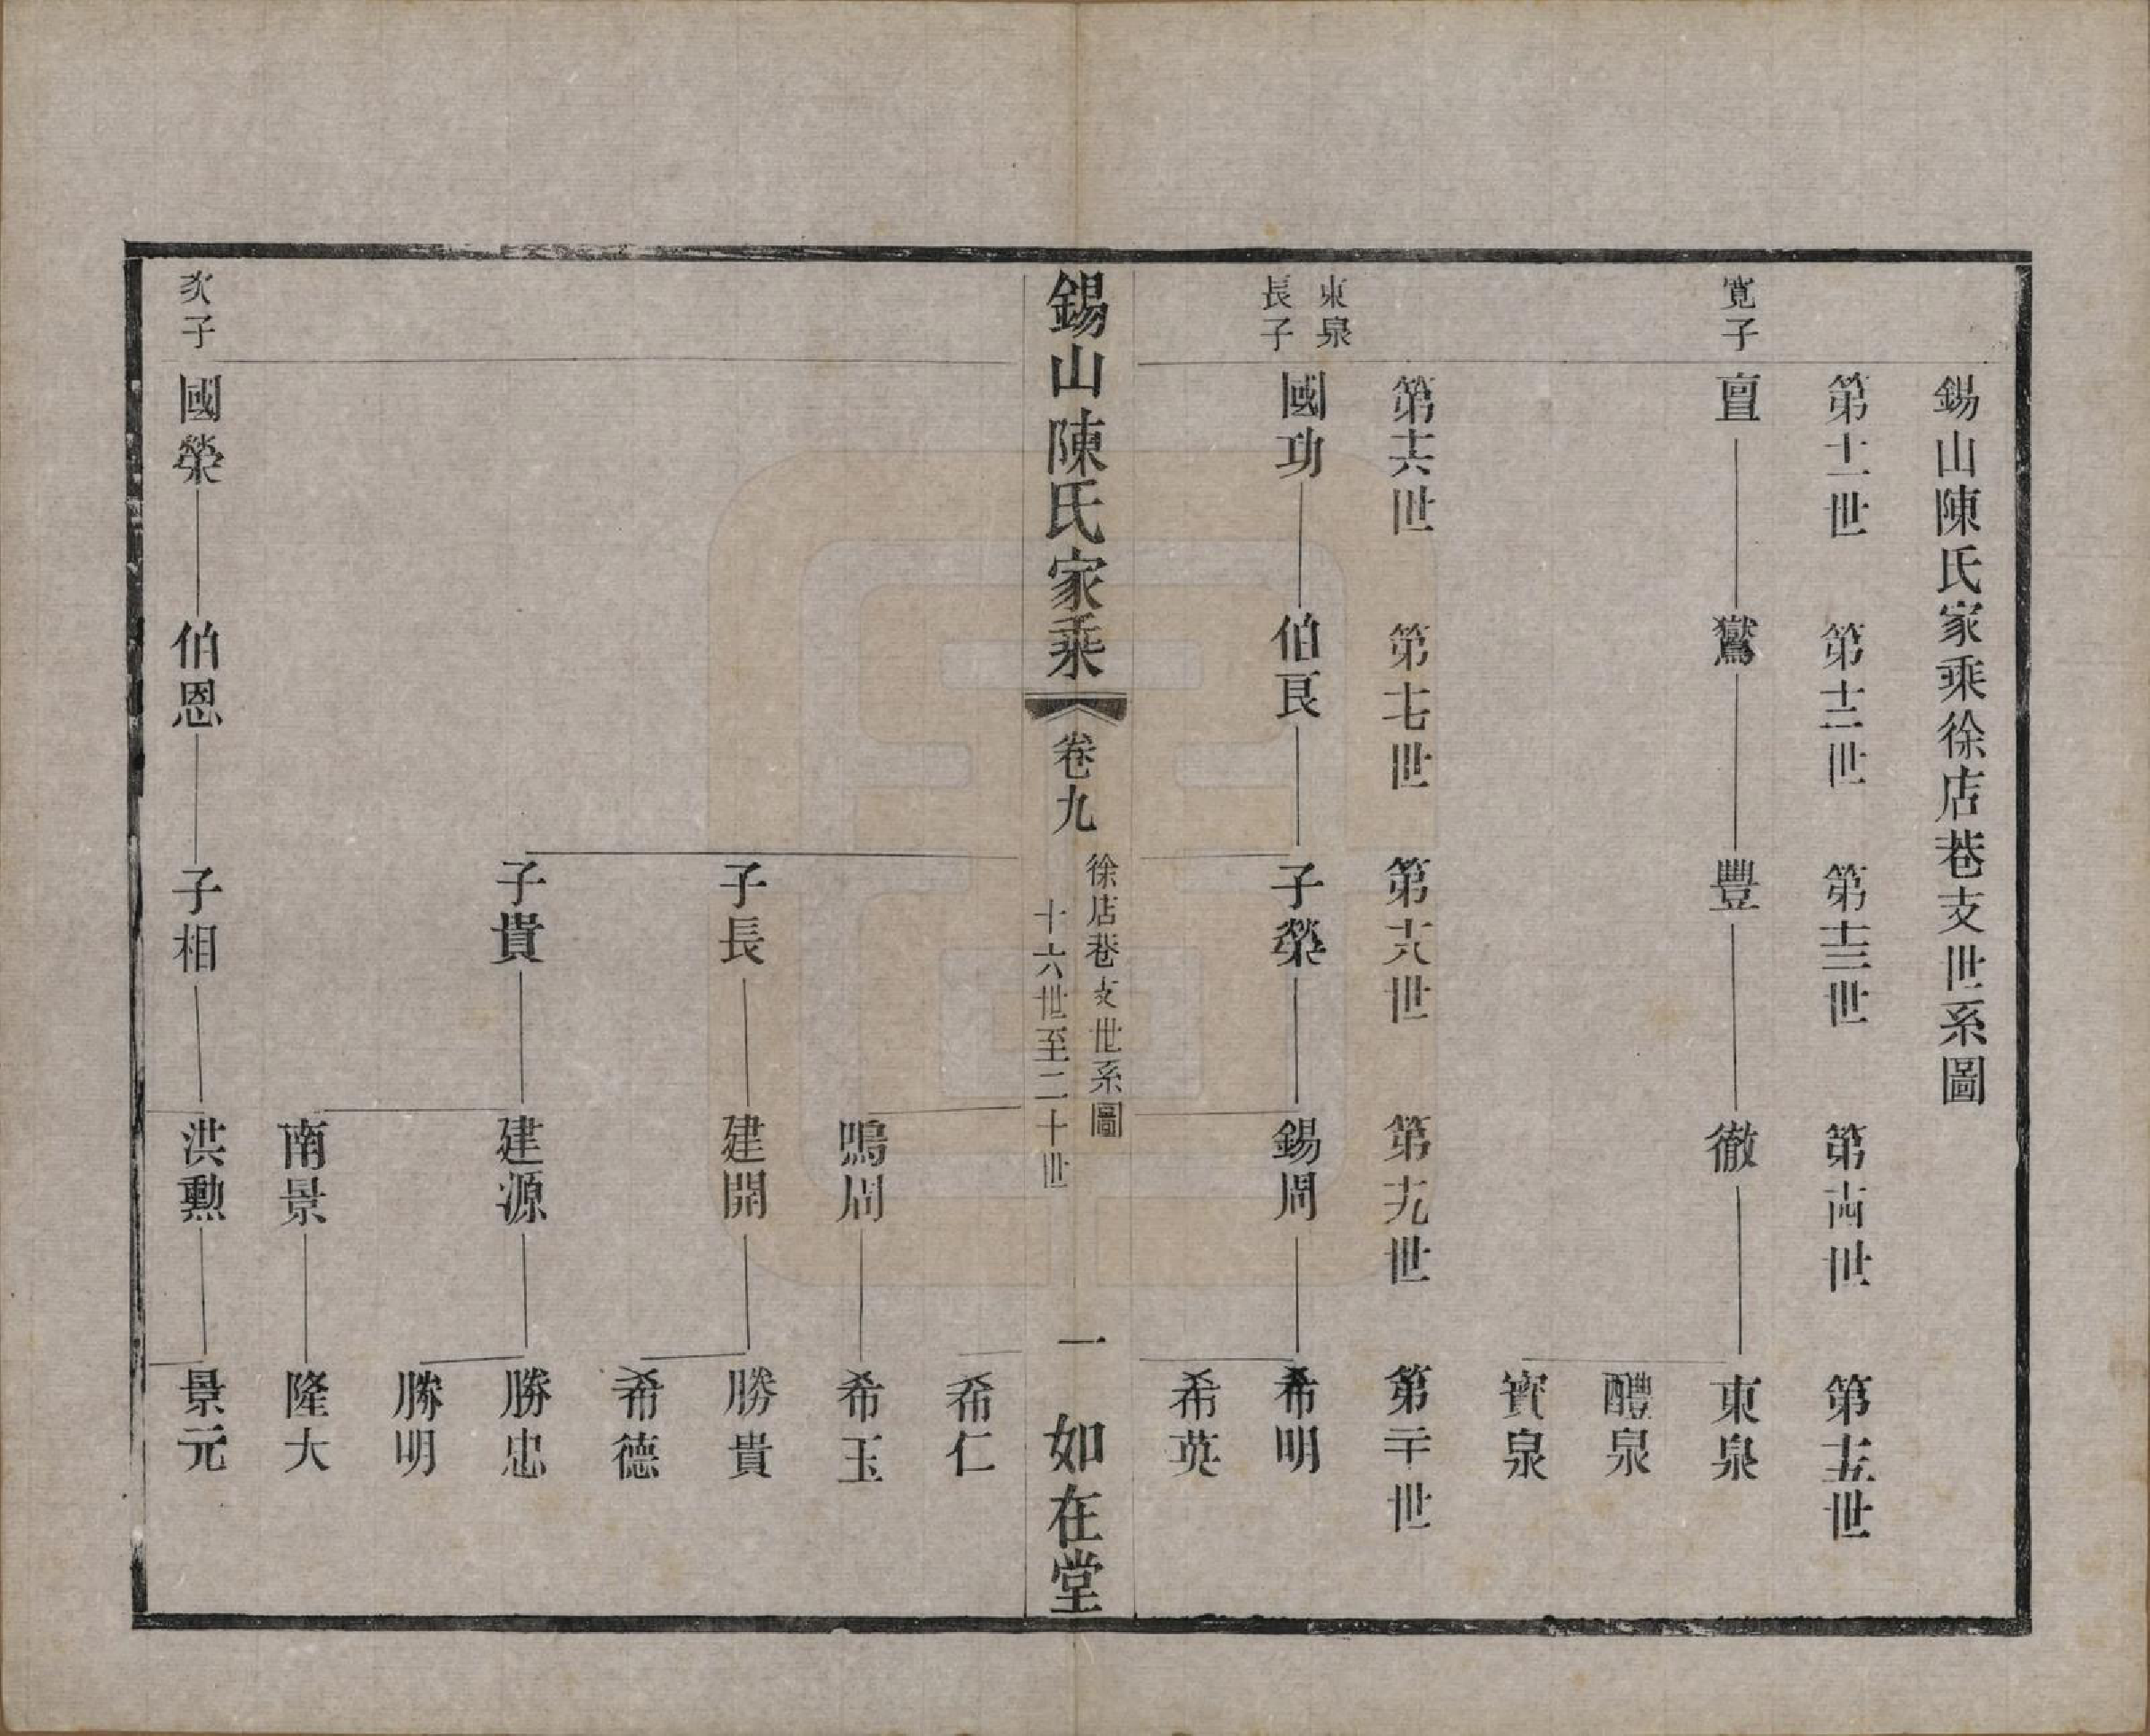 錫山陳氏家乘徐店巷支世系圖
第十一世
第十二世
第十三世
第十四世
第十五世
寬子
亶
鸑
豐
徹
東泉
醴泉
寶泉
第十六世
第十七世
第十八世
第十九世
第二十世
東泉
長子
國功
伯良
子榮
錫周
希明
希英
錫山陳氏家乘
卷九
徐店巷支世系圖
十六世至二十世
一
如在堂
希仁
鳴周
希玉
子長
建開
勝貴
希德
子貴
建源
勝忠
勝明
南景
隆大
次子
國榮
伯恩
子相
洪勳
景元